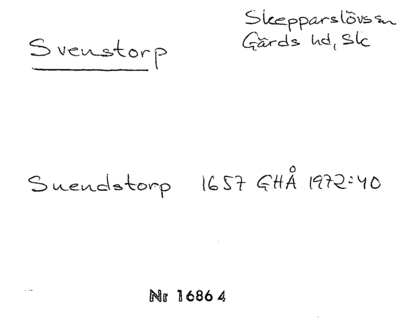 Svenstorp
Skepparslövs sn
Gärds hd, Sk
Suendstorp 1657 GHÅ 1972:40
Nr 16864